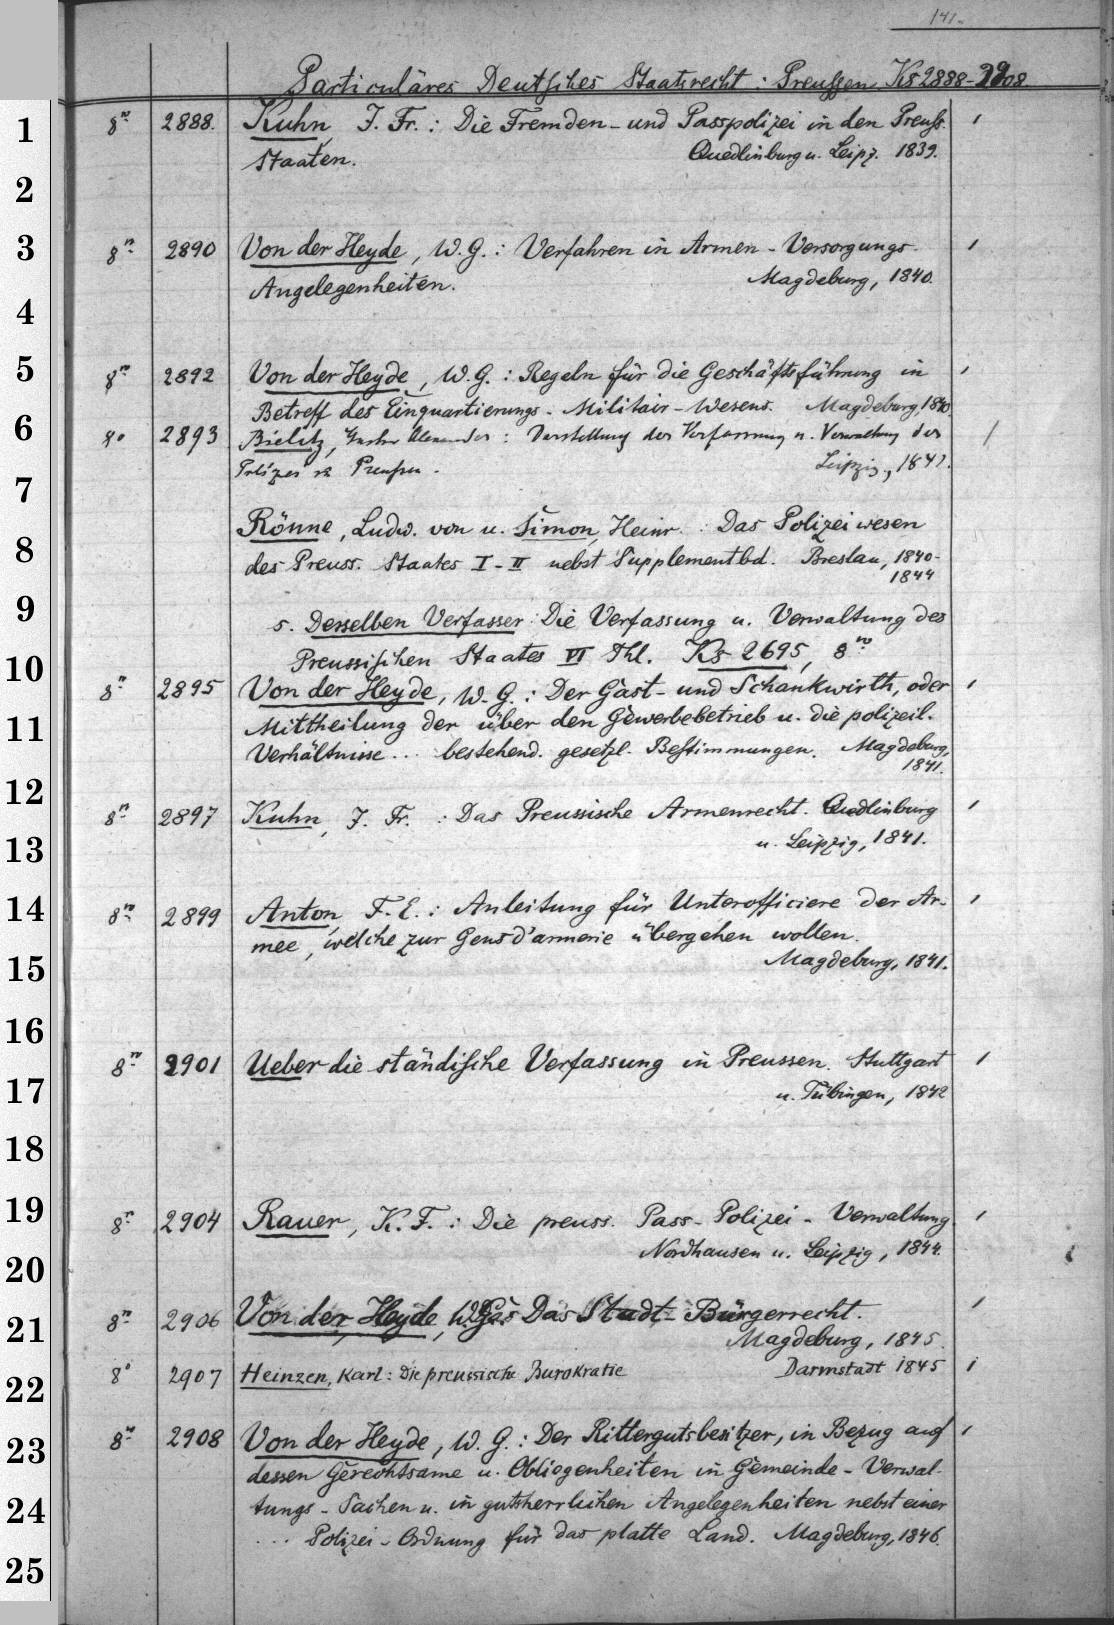 141.
Particuläres Deutsches Staatsrecht : Preussen Ks 2888-2908.
1 8º 2888. Kuhn, J. Fr. : Die Fremden- und Passpolizei in den Preuss. 1
Staaten. Quedlinburg u. Leipz. 1839.
2
3 8º 2890 Von der Heyde, W. G. : Verfahren in Armen-Versorgungs- 1
Angelegenheiten. Magdeburg, 1840.
4
5 8º 2892 Von der Heyde, W. G. : Regeln für die Geschäftsführung in 1
Betreff des Einquartierungs-Militair-Wesens. Magdeburg, 1840.
6 8º 2893 Bielitz, Gustav Alexander : Darstellung der Verfassung u. Verwaltung der 1
Polizei in Preußen. Leipzig, 1841.
7
Rönne, Ludw. von u. Simon, Heinr. : Das Polizeiwesen
8 des Preuss. Staates I-II nebst Supplementbd. Breslau, 1840-
1844
9 s. Desselben Verfasser : Die Verfassung u. Verwaltung des
10 Preussischen Staates VI Thl. Ks 2695, 8º
8º 2895 Von der Heyde, W. G. : Der Gast- und Schankwirth, oder 1
11 Mittheilung der über den Gewerbebetrieb u. die polizeil.
Verhältnisse ... bestehend. gesetzl. Bestimmungen. Magdeburg,
1841.
12 8º 2897 Kuhn, J. Fr. : Das Preussische Armenrecht. Quedlinburg 1
13 u. Leipzig, 1841.
14 8º 2899 Anton, F. E. : Anleitung für Unterofficiere der Ar- 1
mee, welche zur Gensd'armerie übergehen wollen.
15 Magdeburg, 1841.
16
8º 2901 Ueber die ständische Verfassung in Preussen. Stuttgart 1
17 u. Tübingen, 1842
18
19 8º 2904 Rauer, K. F. : Die preuss. Pass-Polizei-Verwaltung. 1
20 Nordhausen u. Leipzig, 1844.
21 8º 2906 Von der Heyde, W. G. : Das Stadt-Bürgerrecht. 1
Magdeburg, 1845.
22 8º 2907 Heinzen, Karl : Die preussische Burokratie Darmstadt 1845 1
23 8º 2908 Von der Heyde, W. G. : Der Rittergutsbesitzer, in Bezug auf 1
dessen Gerechtsame u. Obliegenheiten in Gemeinde-Verwal-
24 tungs-Sachen u. in gutsherrlichen Angelegenheiten nebst einer
... Polizei-Ordnung für das platte Land. Magdeburg, 1846.
25